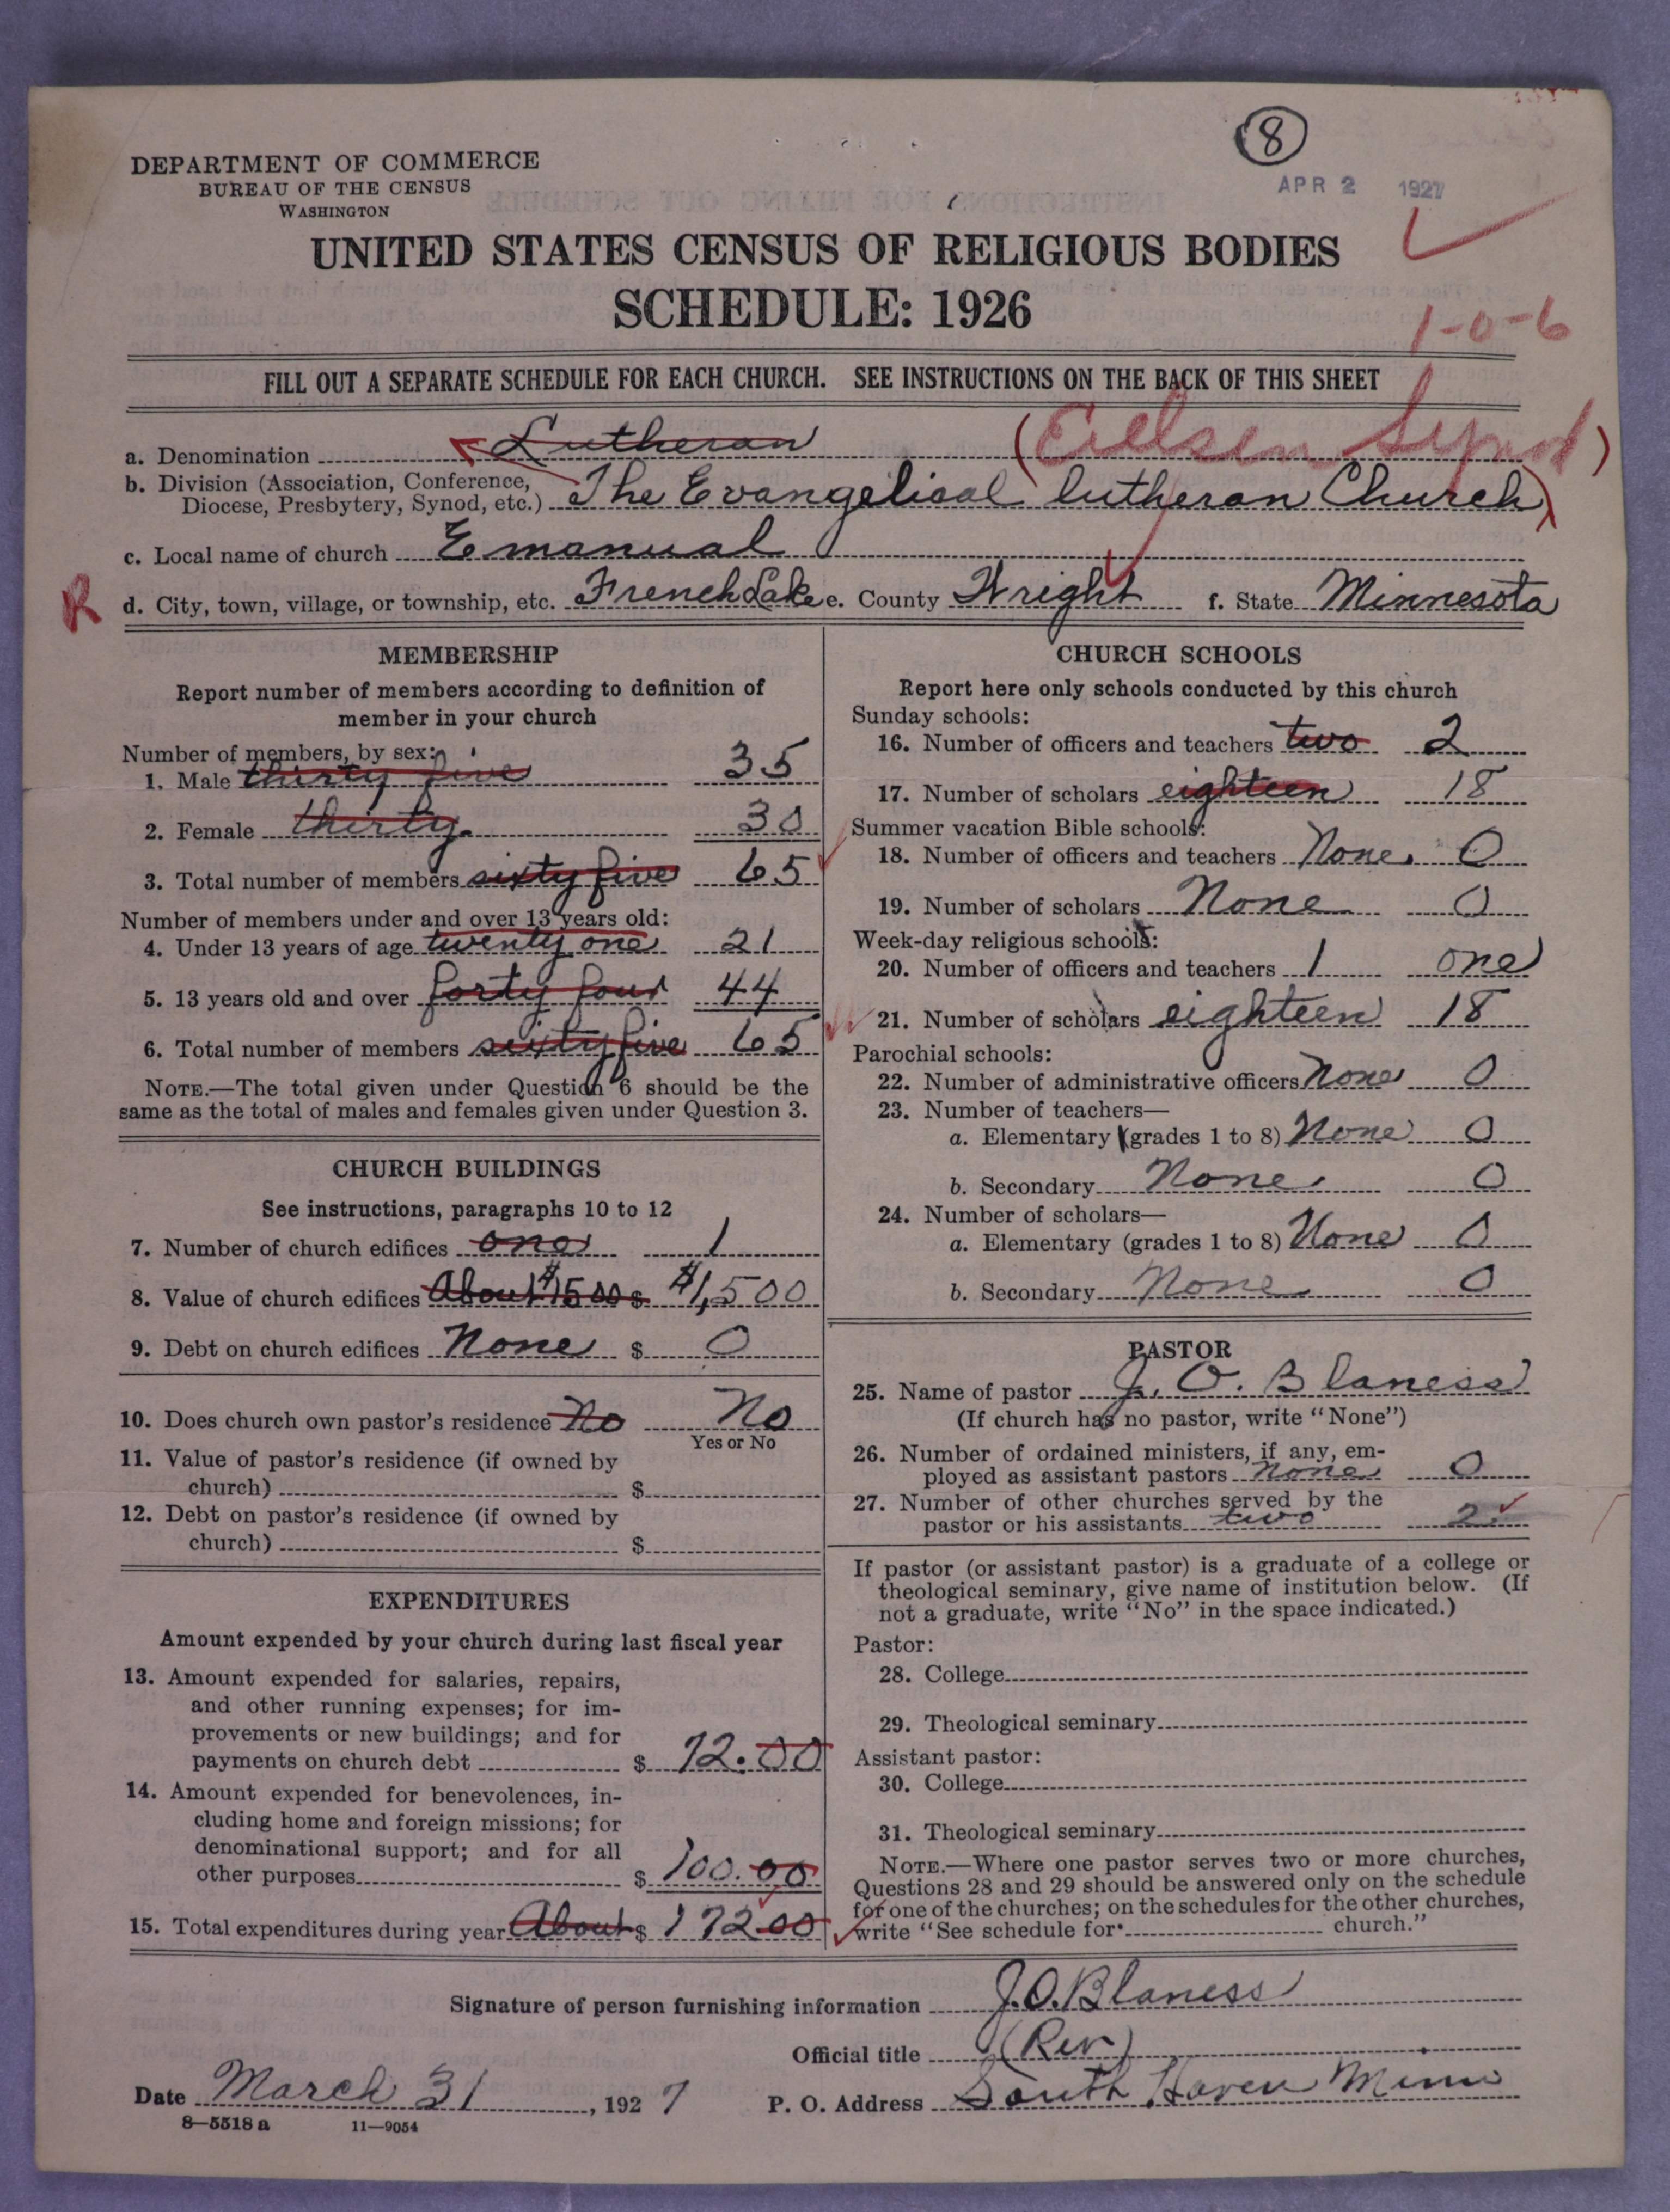 8
APR 2 1927
DEPARTMENT OF COMMERCE
BUREAU OF THE CENSUS
WASHINGTON
UNITED STATES CENSUS OF RELIGIOUS BODIES
SCHEDULE: 1926
1-0-6
FILL OUT A SEPARATE SCHEDULE FOR EACH CHURCH. SEE INSTRUCTIONS ON THE BACK OF THIS SHEET
a. Denomination Lutheran (Eielsen Synod)
b. Division (Association, Conference,
Diocese, Presbytery, Synod, etc.) The Evangelical lutheran Church)
c. Local name of church Emanual
R d. City, town, village, or township, etc. French Lake e. County Wright f. State Minnesota
MEMBERSHIP
Report number of members according to definition of
member in your church
Number of members, by sex:
1. Male thirty five 35
2. Female thirty 30
3. Total number of members sixty five 65
Number of members under and over 13 years old:
4. Under 13 years of age twenty one 21
5. 13 years old and over forty four 44
6. Total number of members sixty five 65
NOTE.—The total given under Question 6 should be the
same as the total of males and females given under Question 3.
CHURCH BUILDINGS
See instructions, paragraphs 10 to 12
7. Number of church edifices one 1
8. Value of church edifices About $1500 $ $1,500
9. Debt on church edifices None $ 0
10. Does church own pastor's residence No No
Yes or No
11. Value of pastor's residence (if owned by
church) $
12. Debt on pastor's residence (if owned by
church) $
EXPENDITURES
Amount expended by your church during last fiscal year
13. Amount expended for salaries, repairs,
and other running expenses; for im-
provements or new buildings; and for
payments on church debt $ 72.00
14. Amount expended for benevolences, in-
cluding home and foreign missions; for
denominational support; and for all
other purposes $ 100.00
15. Total expenditures during year About $ 172 00
CHURCH SCHOOLS
Report here only schools conducted by this church
Sunday schools:
16. Number of officers and teachers two 2
17. Number of scholars eighteen 18
Summer vacation Bible schools:
18. Number of officers and teachers None. 0
19. Number of scholars None 0
Week-day religious schools:
20. Number of officers and teachers 1 one
21. Number of scholars eighteen 18
Parochial schools:
22. Number of administrative officers None 0
23. Number of teachers—
a. Elementary (grades 1 to 8) None 0
b. Secondary None 0
24. Number of scholars—
a. Elementary (grades 1 to 8) None 0
b. Secondary None 0
PASTOR
25. Name of pastor J. O. Blaness
(If church has no pastor, write "None")
26. Number of ordained ministers, if any, em-
ployed as assistant pastors None 0
27. Number of other churches served by the
pastor or his assistants two 2
If pastor (or assistant pastor) is a graduate of a college or
theological seminary, give name of institution below. (If
not a graduate, write "No" in the space indicated.)
Pastor:
28. College
29. Theological seminary
Assistant pastor:
30. College
31. Theological seminary
NOTE.—Where one pastor serves two or more churches,
Questions 28 and 29 should be answered only on the schedule
for one of the churches; on the schedules for the other churches,
write "See schedule for church."
Signature of person furnishing information J.O. Blaness
Official title (Rev)
Date March 31, 1927 P. O. Address South Haven Minn
8—5518 a 11—9054